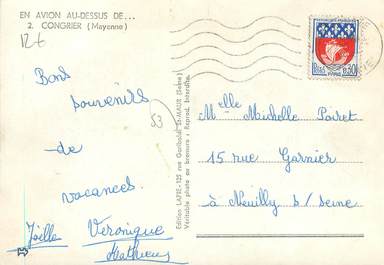 EN AVION AU-DESSUS DE...
2. CONGRIER (Mayenne)
12t
Bons
souvenirs
de
vacances
Joëlle Véronique
Mathieu
53
Edition LAPIE - 125 rue Garibaldi St-MAUR (Seine)
Véritable photo au bromure - Reprod. Interdite.
REPUBLIQUE FRANÇAISE
PARIS
POSTES 0,30
Melle Michelle Poiret
15 rue Garnier
à Neuilly s/ Seine